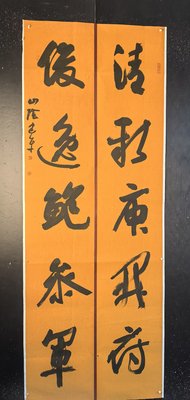 清新庾開府
俊逸鮑參軍
山陰